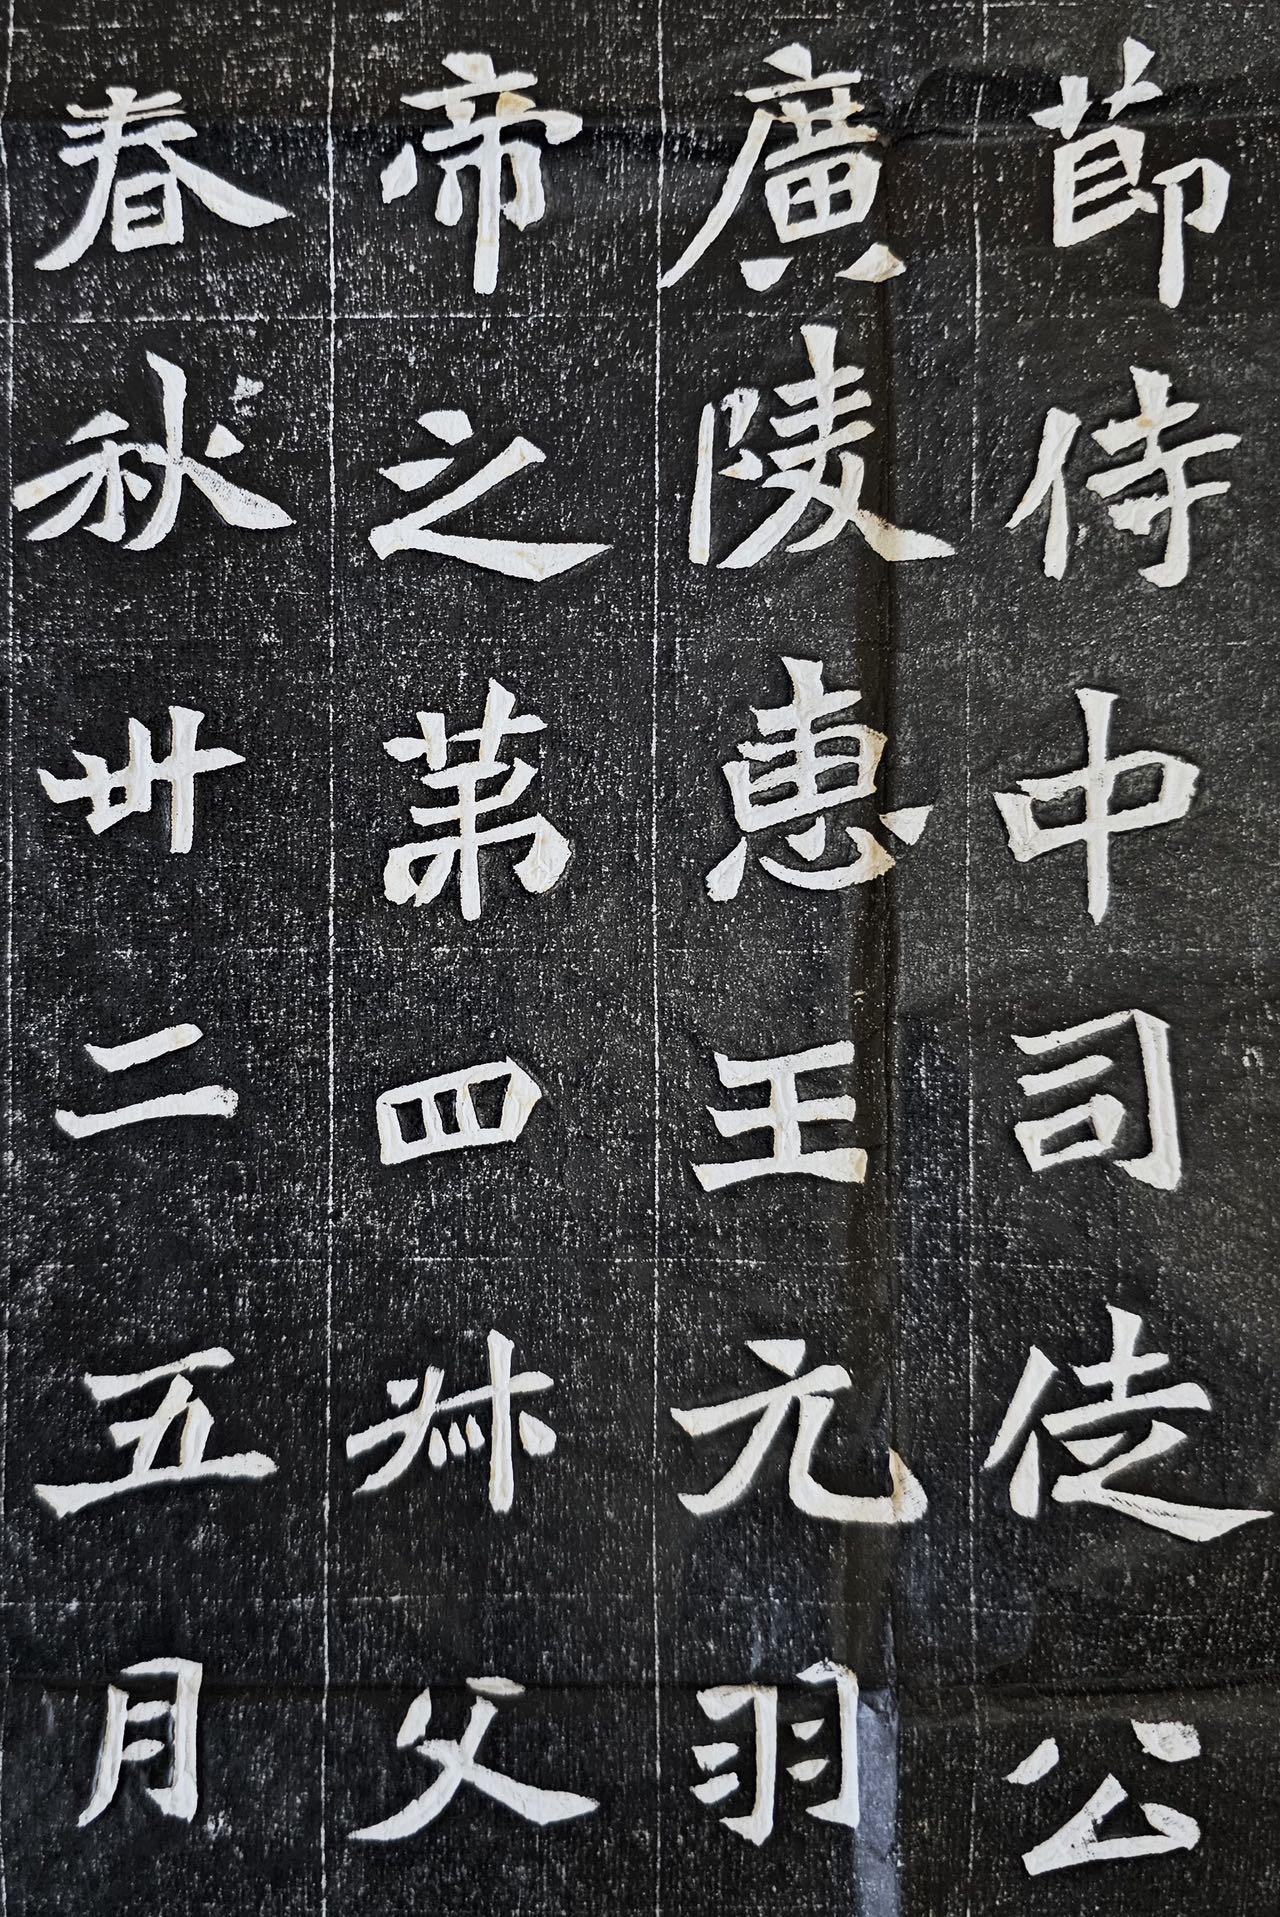 節侍中司徒公
廣陵惠王元羽
帝之第四叔父
春秋卅二五月